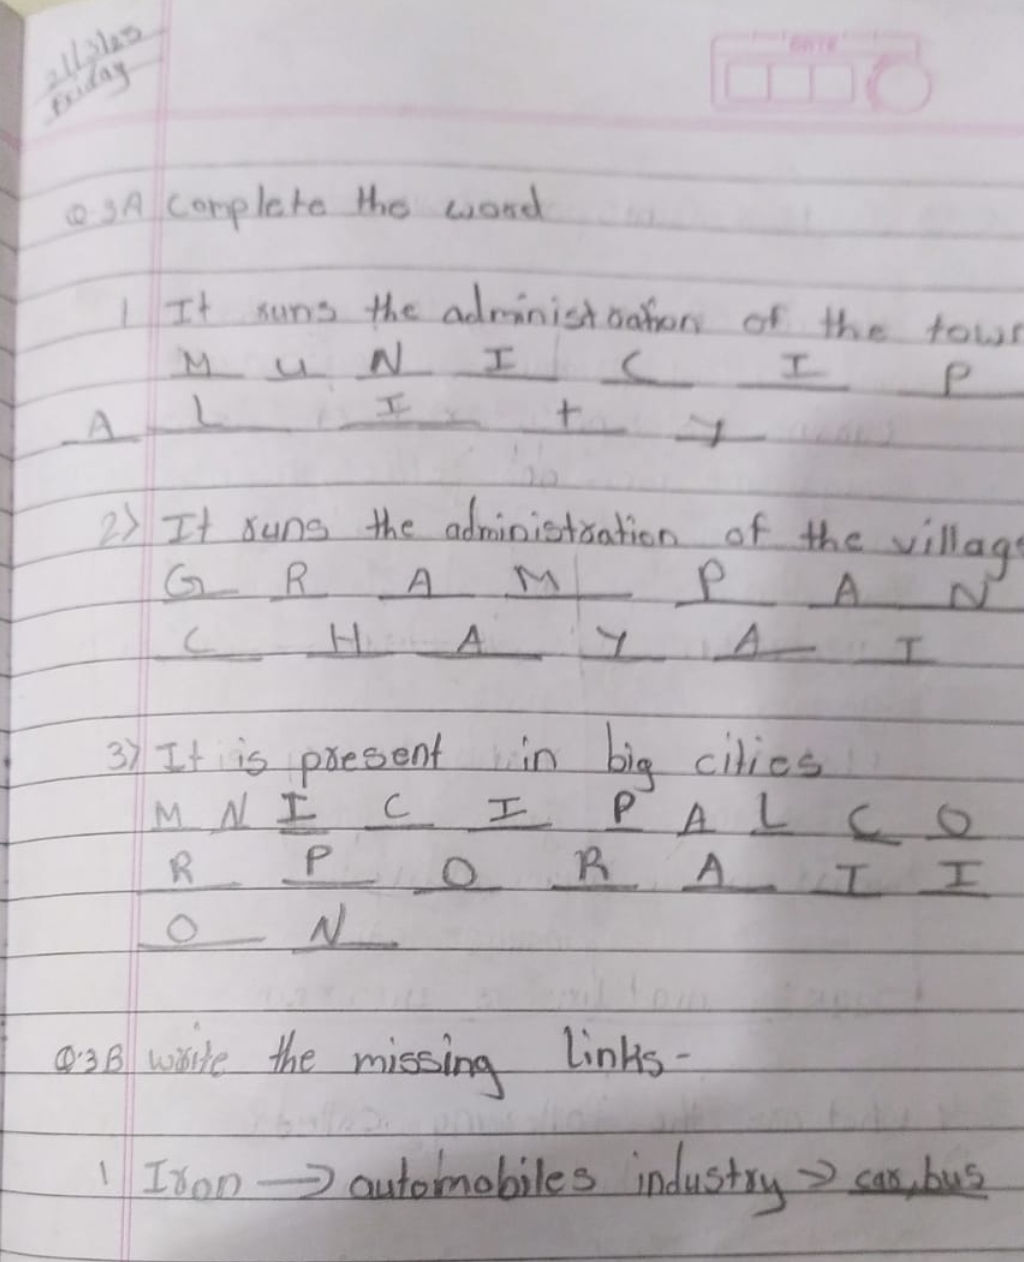 21/3/25
Friday
DATE
Q.3A Complete the word
1 It runs the administration of the town
M U N I C I P
A L I T Y
2) It runs the administration of the village
G R A M P A N
C H A Y A I
3) It is present in big cities
M N I C I P A L C O
R P O R A T I
O N
Q.3B write the missing links-
1 Iron → automobiles industry → car, bus